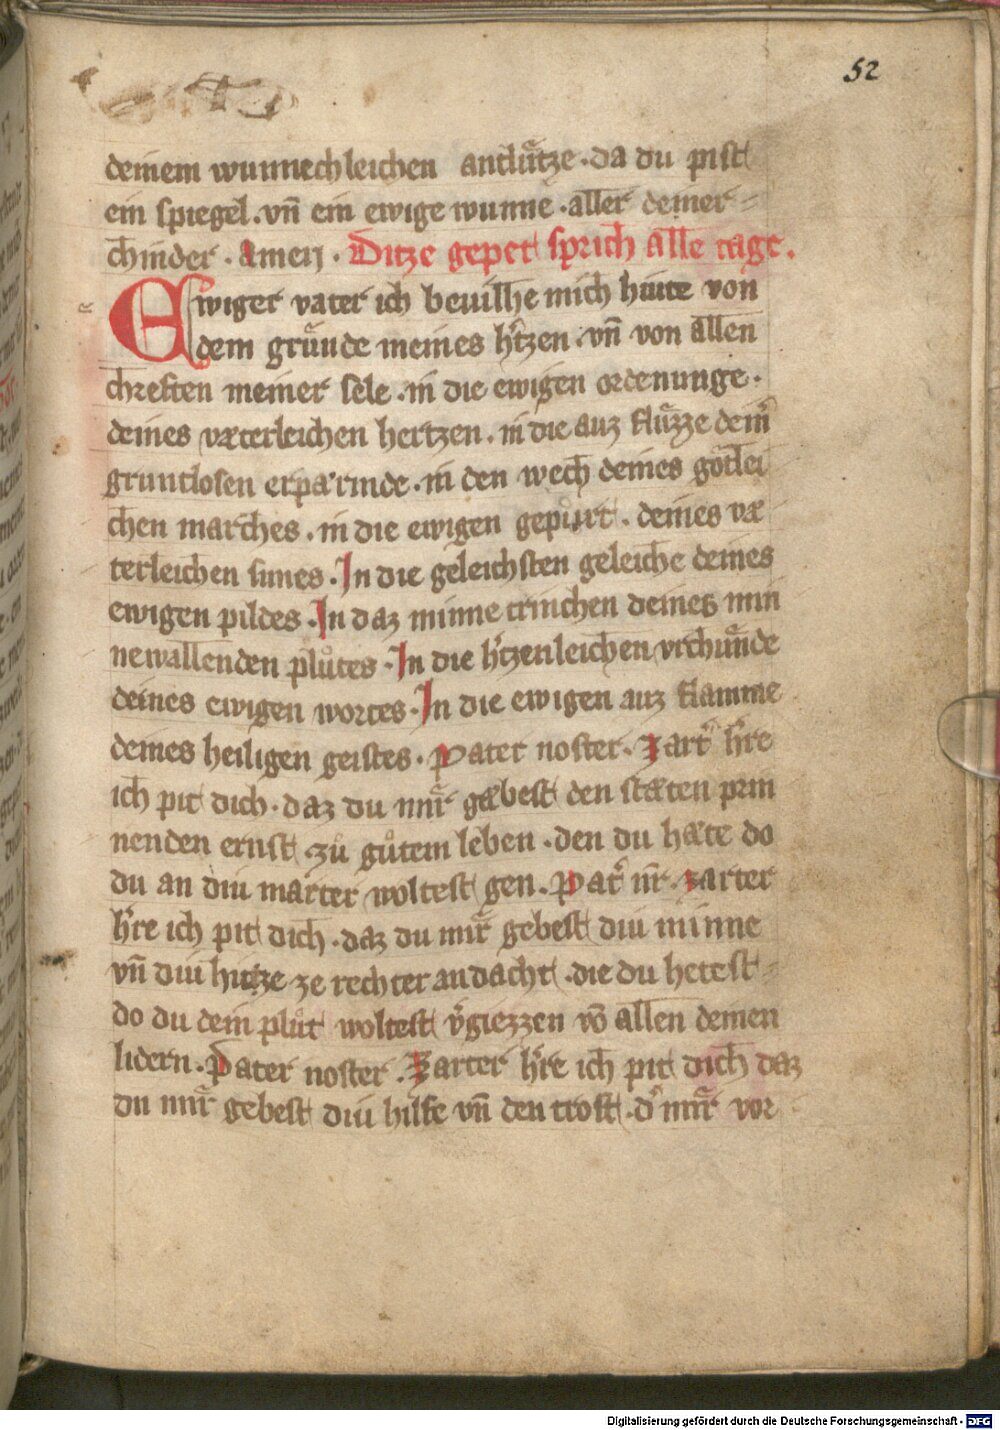 52
deinem wunnechleichen antluͤtze · da du pist
ein spiegel · vn̄ ein ewige wunne · aller deiner
chinder · Amen · Ditze gepet sprich alle tage.
Ewiger vater ich beuilhe mich hiute von
dem gruͤnde meines h̓tzen · vn̄ von allen
chreften meiner sele · in die ewigen ordenunge ·
deines væterleichen hertzen · in die auz fluͤzze dein̓
gruntlosen erparmde · in den wech deines gotlei
chen marches · in die ewigen gepuͤrt · deines væ
terleichen sunes · In die geleichsten geleiche deines
ewigen pildes · In daz minne trinchen deines min
newallenden pluͦtes · In die h̓tzenleichen vrchuͤnde
deines ewigen wortes · In die ewigen auz flamme
deines heiligen geistes · Pater noster · Zart̓ h̓re
ich pit dich · daz du mir gæbest den stæten prin
nenden ernst zuͦ guͦtem leben · den du hæte do
du an diu marter woltest gen · Pat̓ nr̄ · zarter
h̓re ich pit dich · daz du mir gebest diu minne
vn̄ diu hitze ze rechter andacht · die du hetest
do du dein pluͦt woltest v̓giezzen vō allen deinen
lidern · Pater noster · Zarter h̓re ich pit dich daz
du mir gebest diu hilfe vn̄ den trost · d̓ mir vor
Digitalisierung gefördert durch die Deutsche Forschungsgemeinschaft - DFG